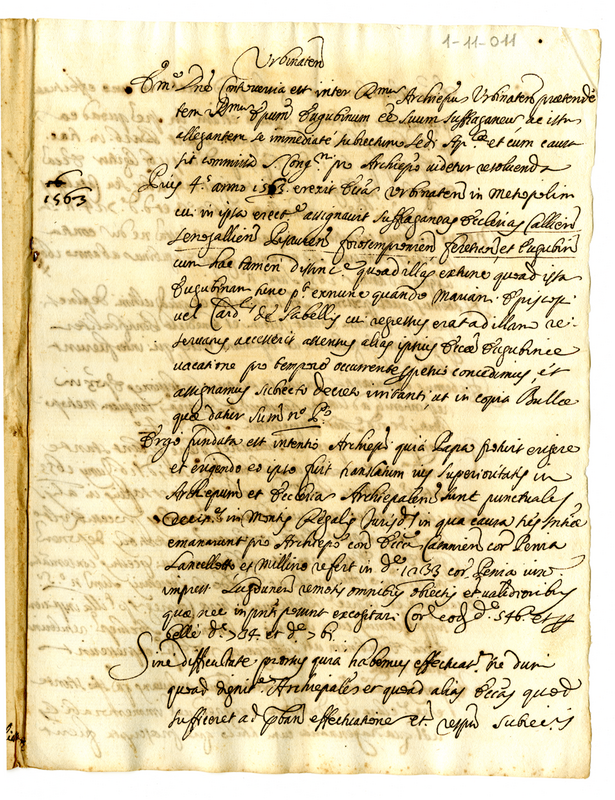 1-11-011
Urbinaten
Em.e Dne Controversia est inter Rmum Archiepum Urbinaten prætendē
tem Rmum Epum Eugubinum eē suum suffraganeum ac istū
allegantem se immediate subiectum Sedi Ap.cæ et cum causa
sit commissa S. Cong.ni pro Archiepo videtur resolvenda
16
1563
Pius 4.s anno 1563. erexit Eccām Urbinaten in Metropolim
cui in ipsa erect.e assignavit suffraganeas Ecclesias Callien
Senogallien Pisauren forosempronien feretran et Eugubin
cum hac tamen distinct.e quoad illas extunc quoad istā
Eugubinam tunc p.o exnunc quando Marian. Episcop.
vel Card.li de Sabellis cui regressus erat ad illam re-
servatus accesserit assensus alias ipsius Eccæ Eugubinæ
vacatione pro tempore occurrente perpetuo concedimus et
assignamus subiecto decreto irritanti, ut in copia Bullæ
quæ datur Sum. n.o P.o
Ergo fundata est intentio Archiepi quia Papa potuit erigere
et erigendo eo ipso fuit translatum ius superioritatis in
Archiepum et Ecclesia Archiepalem sunt punctuales
decis.es in Montis Regalis Jurisd.s in qua causa tres
emanarunt pro Archiepo con Eccā cor Penia
Lancellotto et Millino refert in d.e 1233 cor Penia
impress Lugdunen remotis omnibus obiectis et validioribus
quæ nec in pnti possunt excogitari Cor eod d.e 546. et
belle d.e 734 et d.e 761.
Sine difficultate prorsus quia habemus effectuat.
quoad dignit.e Archiepalem et quoad alias Eccās quod
sufficeret ad effectuatione et. subiecis